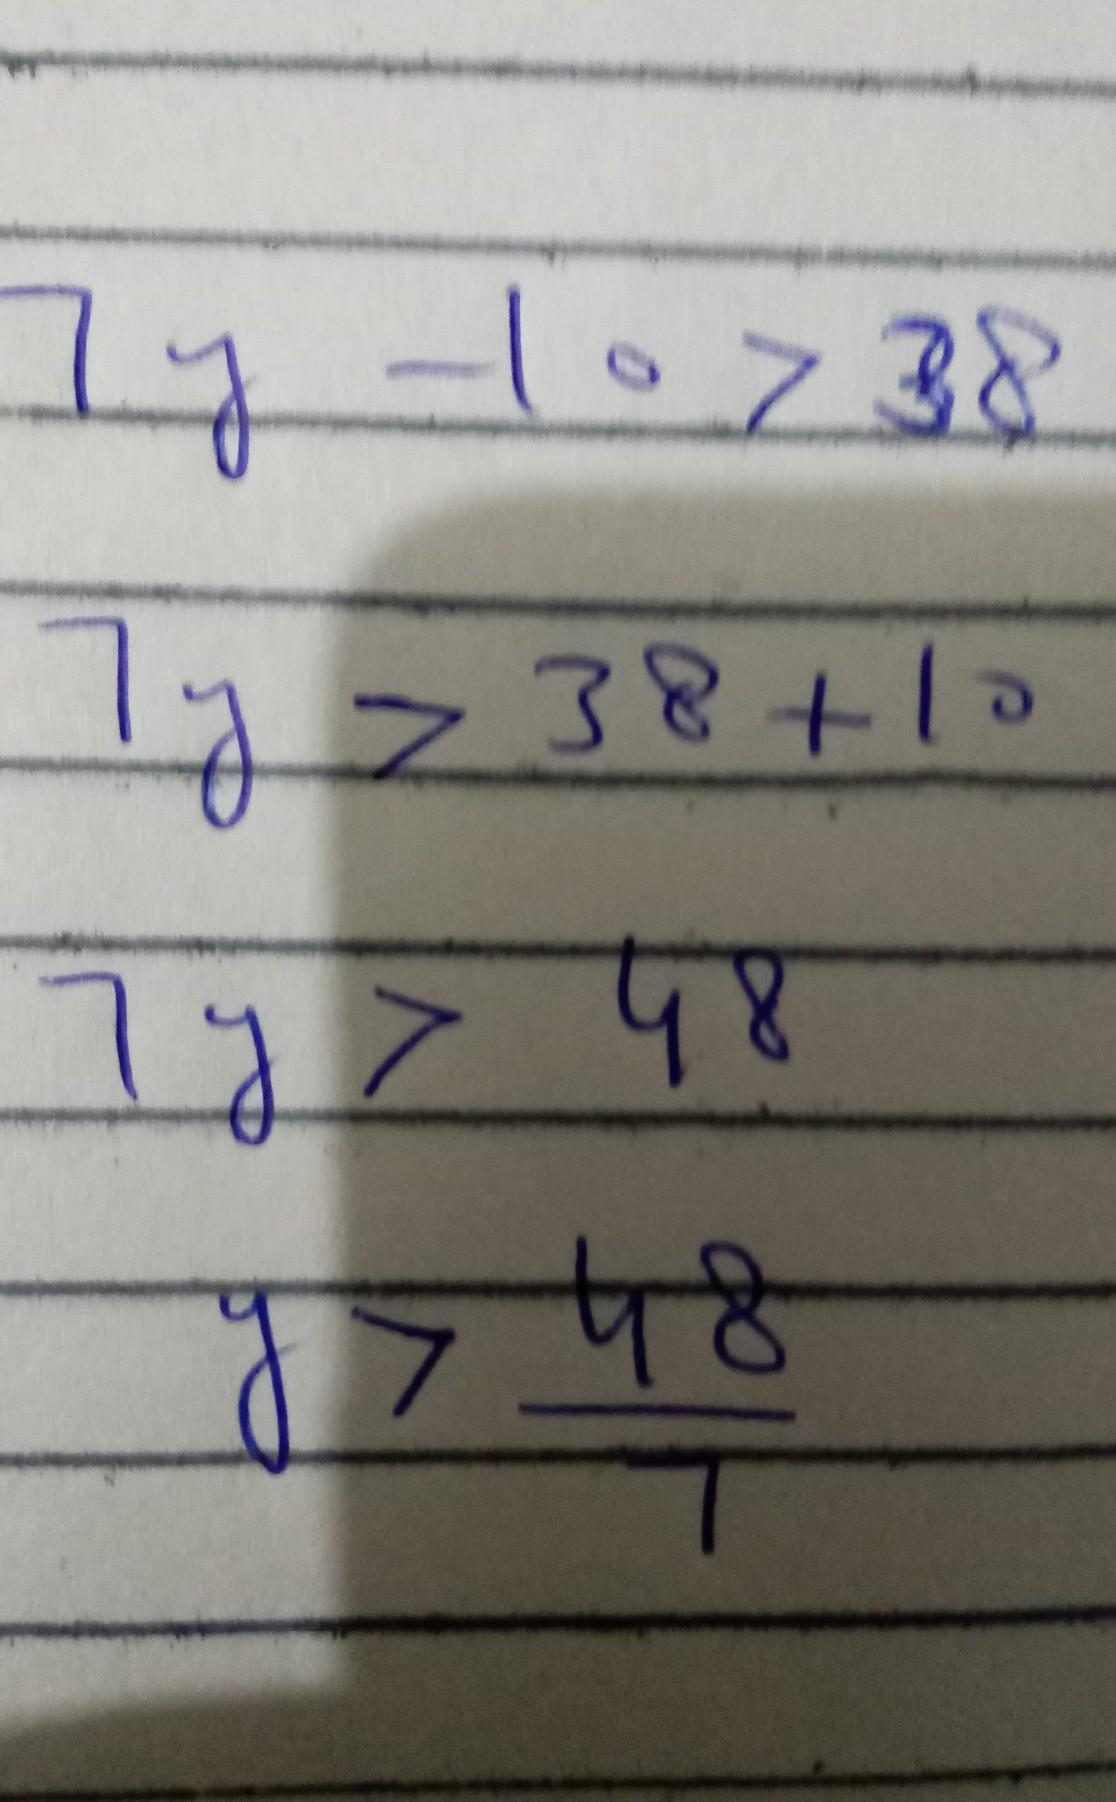 7y - 10 > 38
7y > 38 + 10
7y > 48
y > 48/7